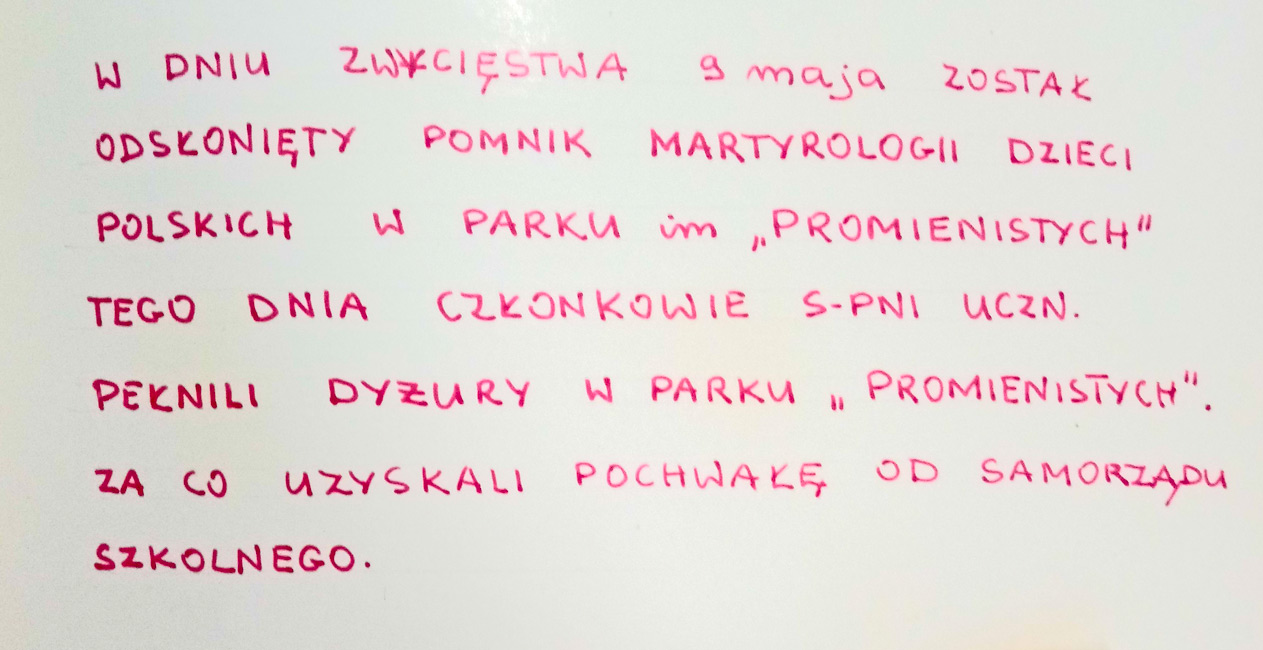 W DNIU ZWYCIĘSTWA 9 maja ZOSTAŁ
ODSŁONIĘTY POMNIK MARTYROLOGII DZIECI
POLSKICH W PARKU im „PROMIENISTYCH"
TEGO DNIA CZŁONKOWIE S-PNI UCZN.
PEŁNILI DYŻURY W PARKU „PROMIENISTYCH".
ZA CO UZYSKALI POCHWAŁĘ OD SAMORZĄDU
SZKOLNEGO.